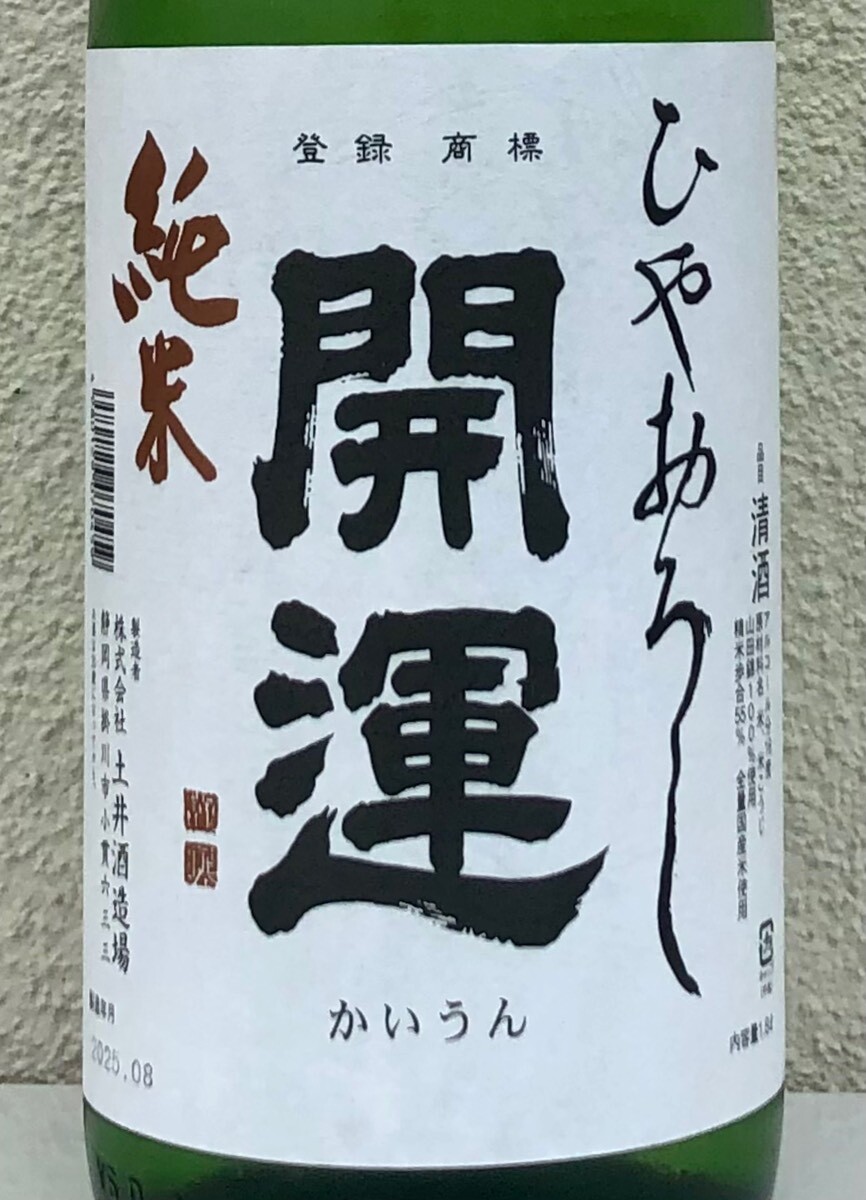 ひやおろし
登録 商標
開運
かいうん
純米
品目 清酒
アルコール分16度
原材料名 米、米こうじ
山田錦100%使用
精米歩合55% 全量国産米使用
内容量1.8ℓ
製造者
株式会社 土井酒造場
静岡県掛川市小貫六三三
製造年月
2025.08